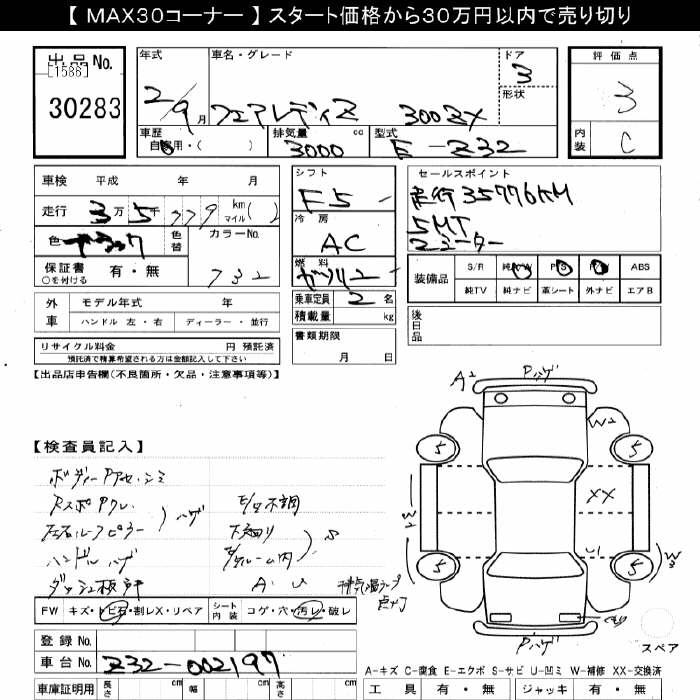 【 MAX30コーナー 】 スタート価格から30万円以内で売り切り
出品No.
[1586]
30283
年式
2/9月
車名・グレード
フェアレディZ 300ZX
ドア
3
形状
評価点
3
内装
C
車歴
自家用・( )
排気量
3000 cc
型式
E-Z32
車検 平成 年 月
走行 3万5千779 km マイル( )
色
色替
カラーNo.
732
保証書 有・無
○を付ける
シフト
F5
冷房
AC
燃料
ガソリン
乗車定員 2 名
積載量 kg
書類期限
月 日
セールスポイント
走行35776KM
5MT
装備品
S/R 純AW P/S P/W ABS
純TV 純ナビ 革シート 外ナビ エアB
後日品
外車
モデル年式 年
ハンドル 左・右 ディーラー・並行
リサイクル料金 円 預託済
預託済で精算希望される方は金額記入して下さい
【出品店申告欄(不良箇所・欠品・注意事項等)】
【検査員記入】
ボディーPアセ・シミ
RスポPワレ
左右ルーフピラー ハゲ
ハンドルハゲ
E/g不調
下廻り S
E/gルーム内
A・U
A2
Pハゲ
W2
5
5
XX
U1
W3
5
5
Pハゲ
FW キズ・トビ石・割レX・リペア
シート内装 コゲ・穴・汚レ・破レ
登録No.
車台No. Z32-002197
車庫証明用 長さ cm 幅 cm 高さ cm
スペア
A-キズ C-腐食 E-エクボ S-サビ U-凹ミ W-補修 XX-交換済
工具 有・無 ジャッキ 有・無